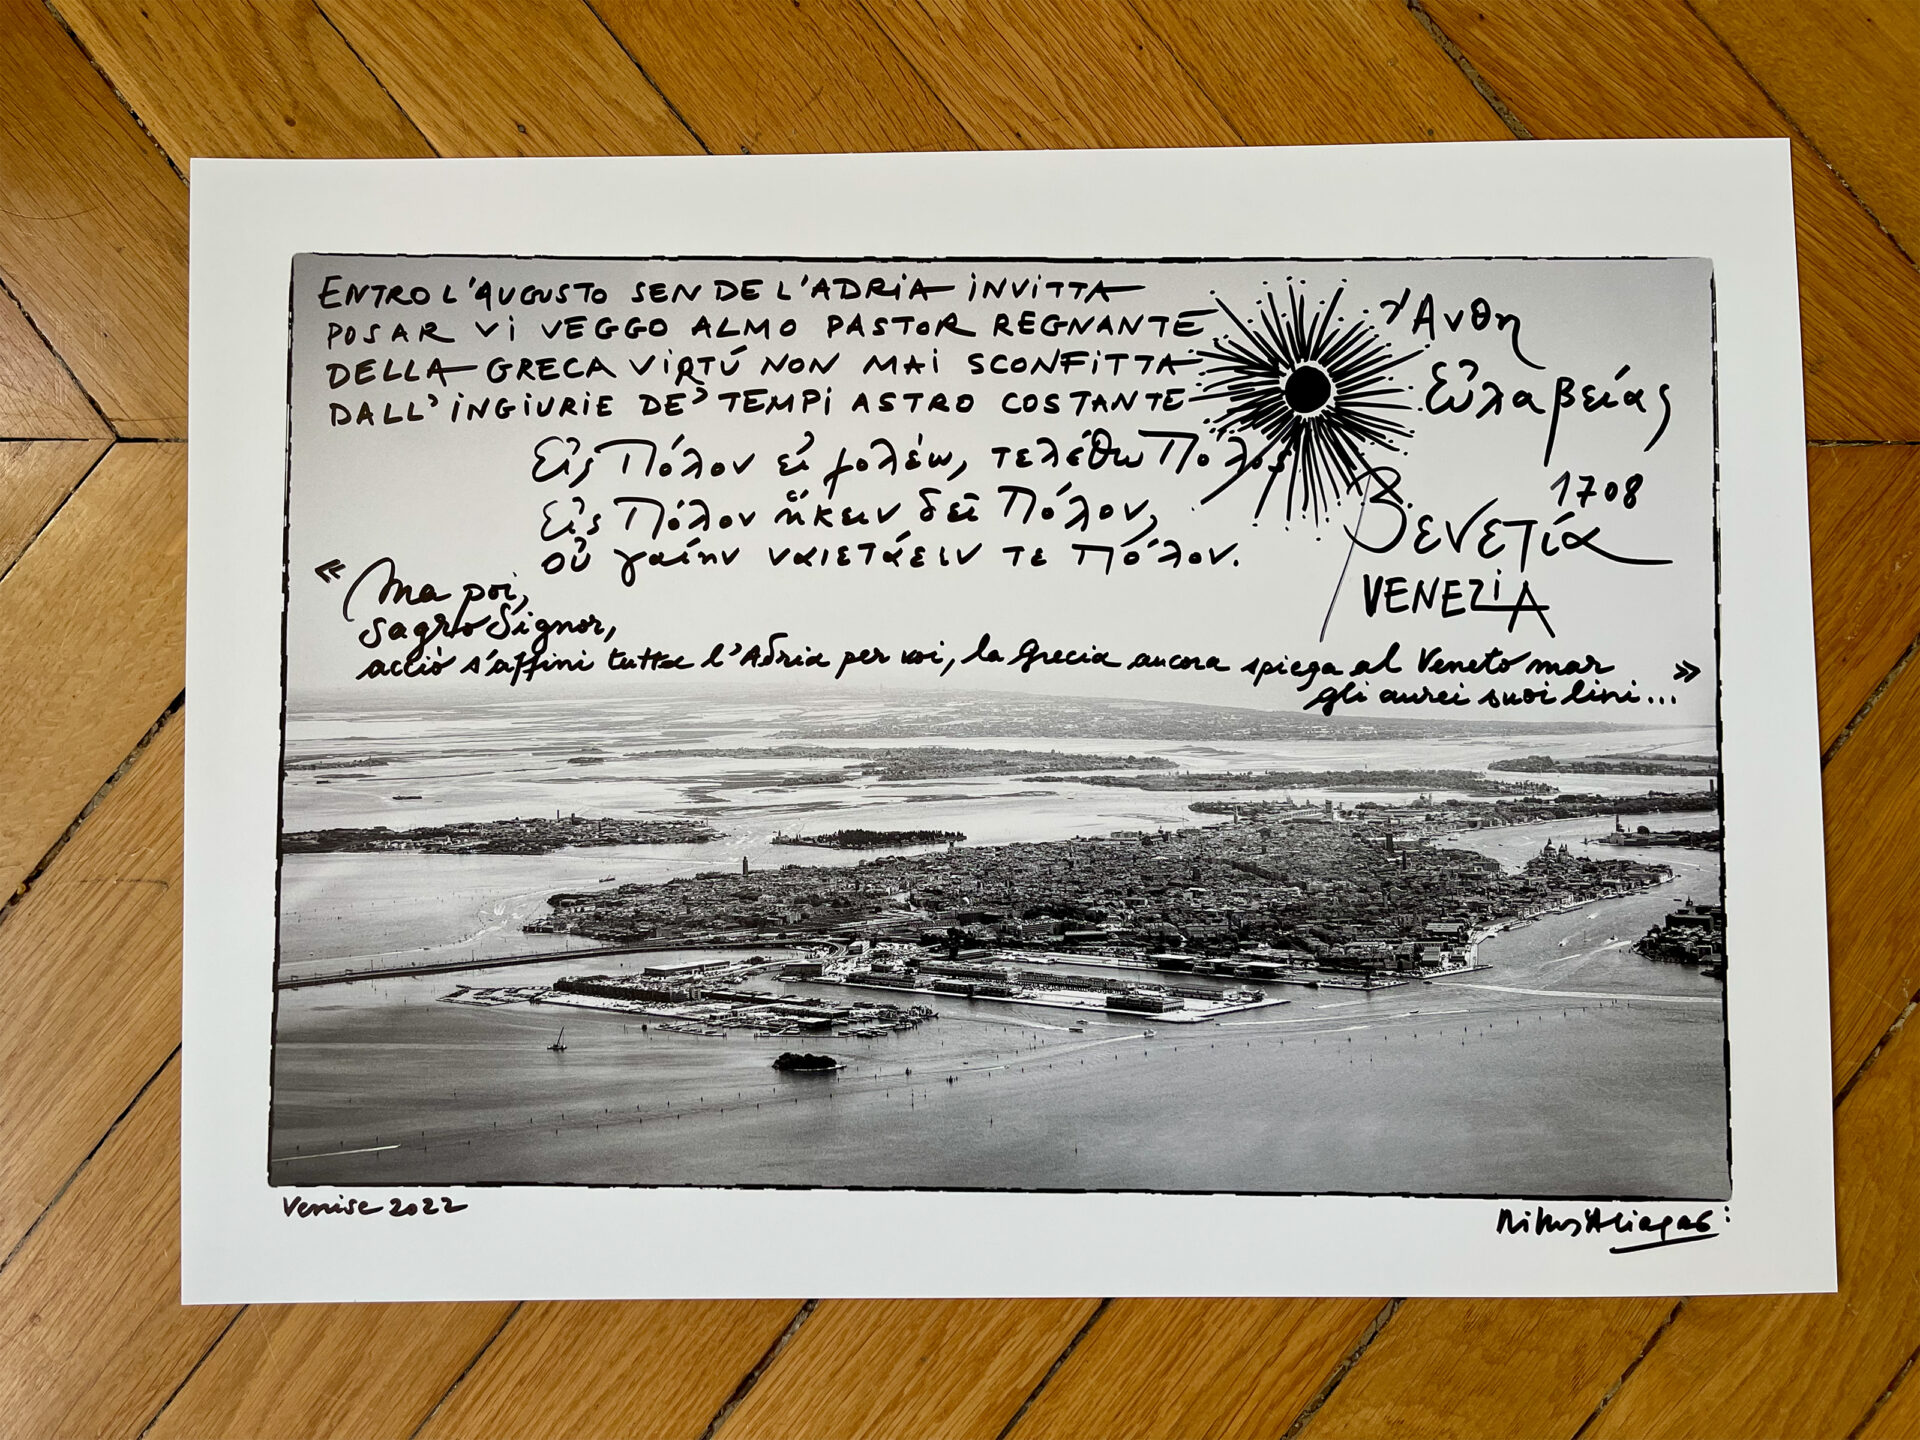 ENTRO L'AUGUSTO SEN DE L'ADRIA INVITTA
POSAR VI VEGGO ALMO PASTOR REGNANTE
DELLA GRECA VIRTÚ NON MAI SCONFITTA
DALL' INGIURIE DE' TEMPI ASTRO COSTANTE
Ἄνθη
Εὐλαβείας
1708
Βενετία
VENEZIA
Εἰς Πόλον εἰ μολέω, τελέθω Πόλος
Εἰς Πόλον ἥκειν δεῖ Πόλον,
οὐ γαίην ναιετάειν τε πόλον.
« Ma poi,
sagro Signor,
acciò s'affini tutta l'Adria per voi, la Grecia ancora spiega al Veneto mar
gli aurei suoi lini... »
Venise 2022
Nikos Aliagas